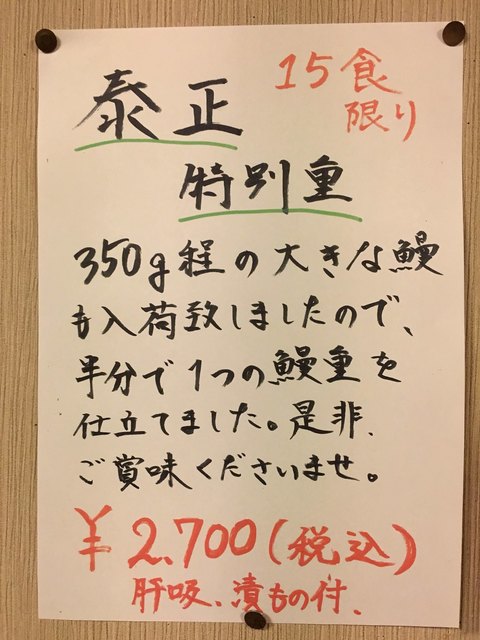 15食
限り
泰正
特別重
350g程の大きな鰻
も入荷致しましたので、
半分で1つの鰻重を
仕立てました。是非、
ご賞味くださいませ。
¥2.700(税込)
肝吸、漬もの付、